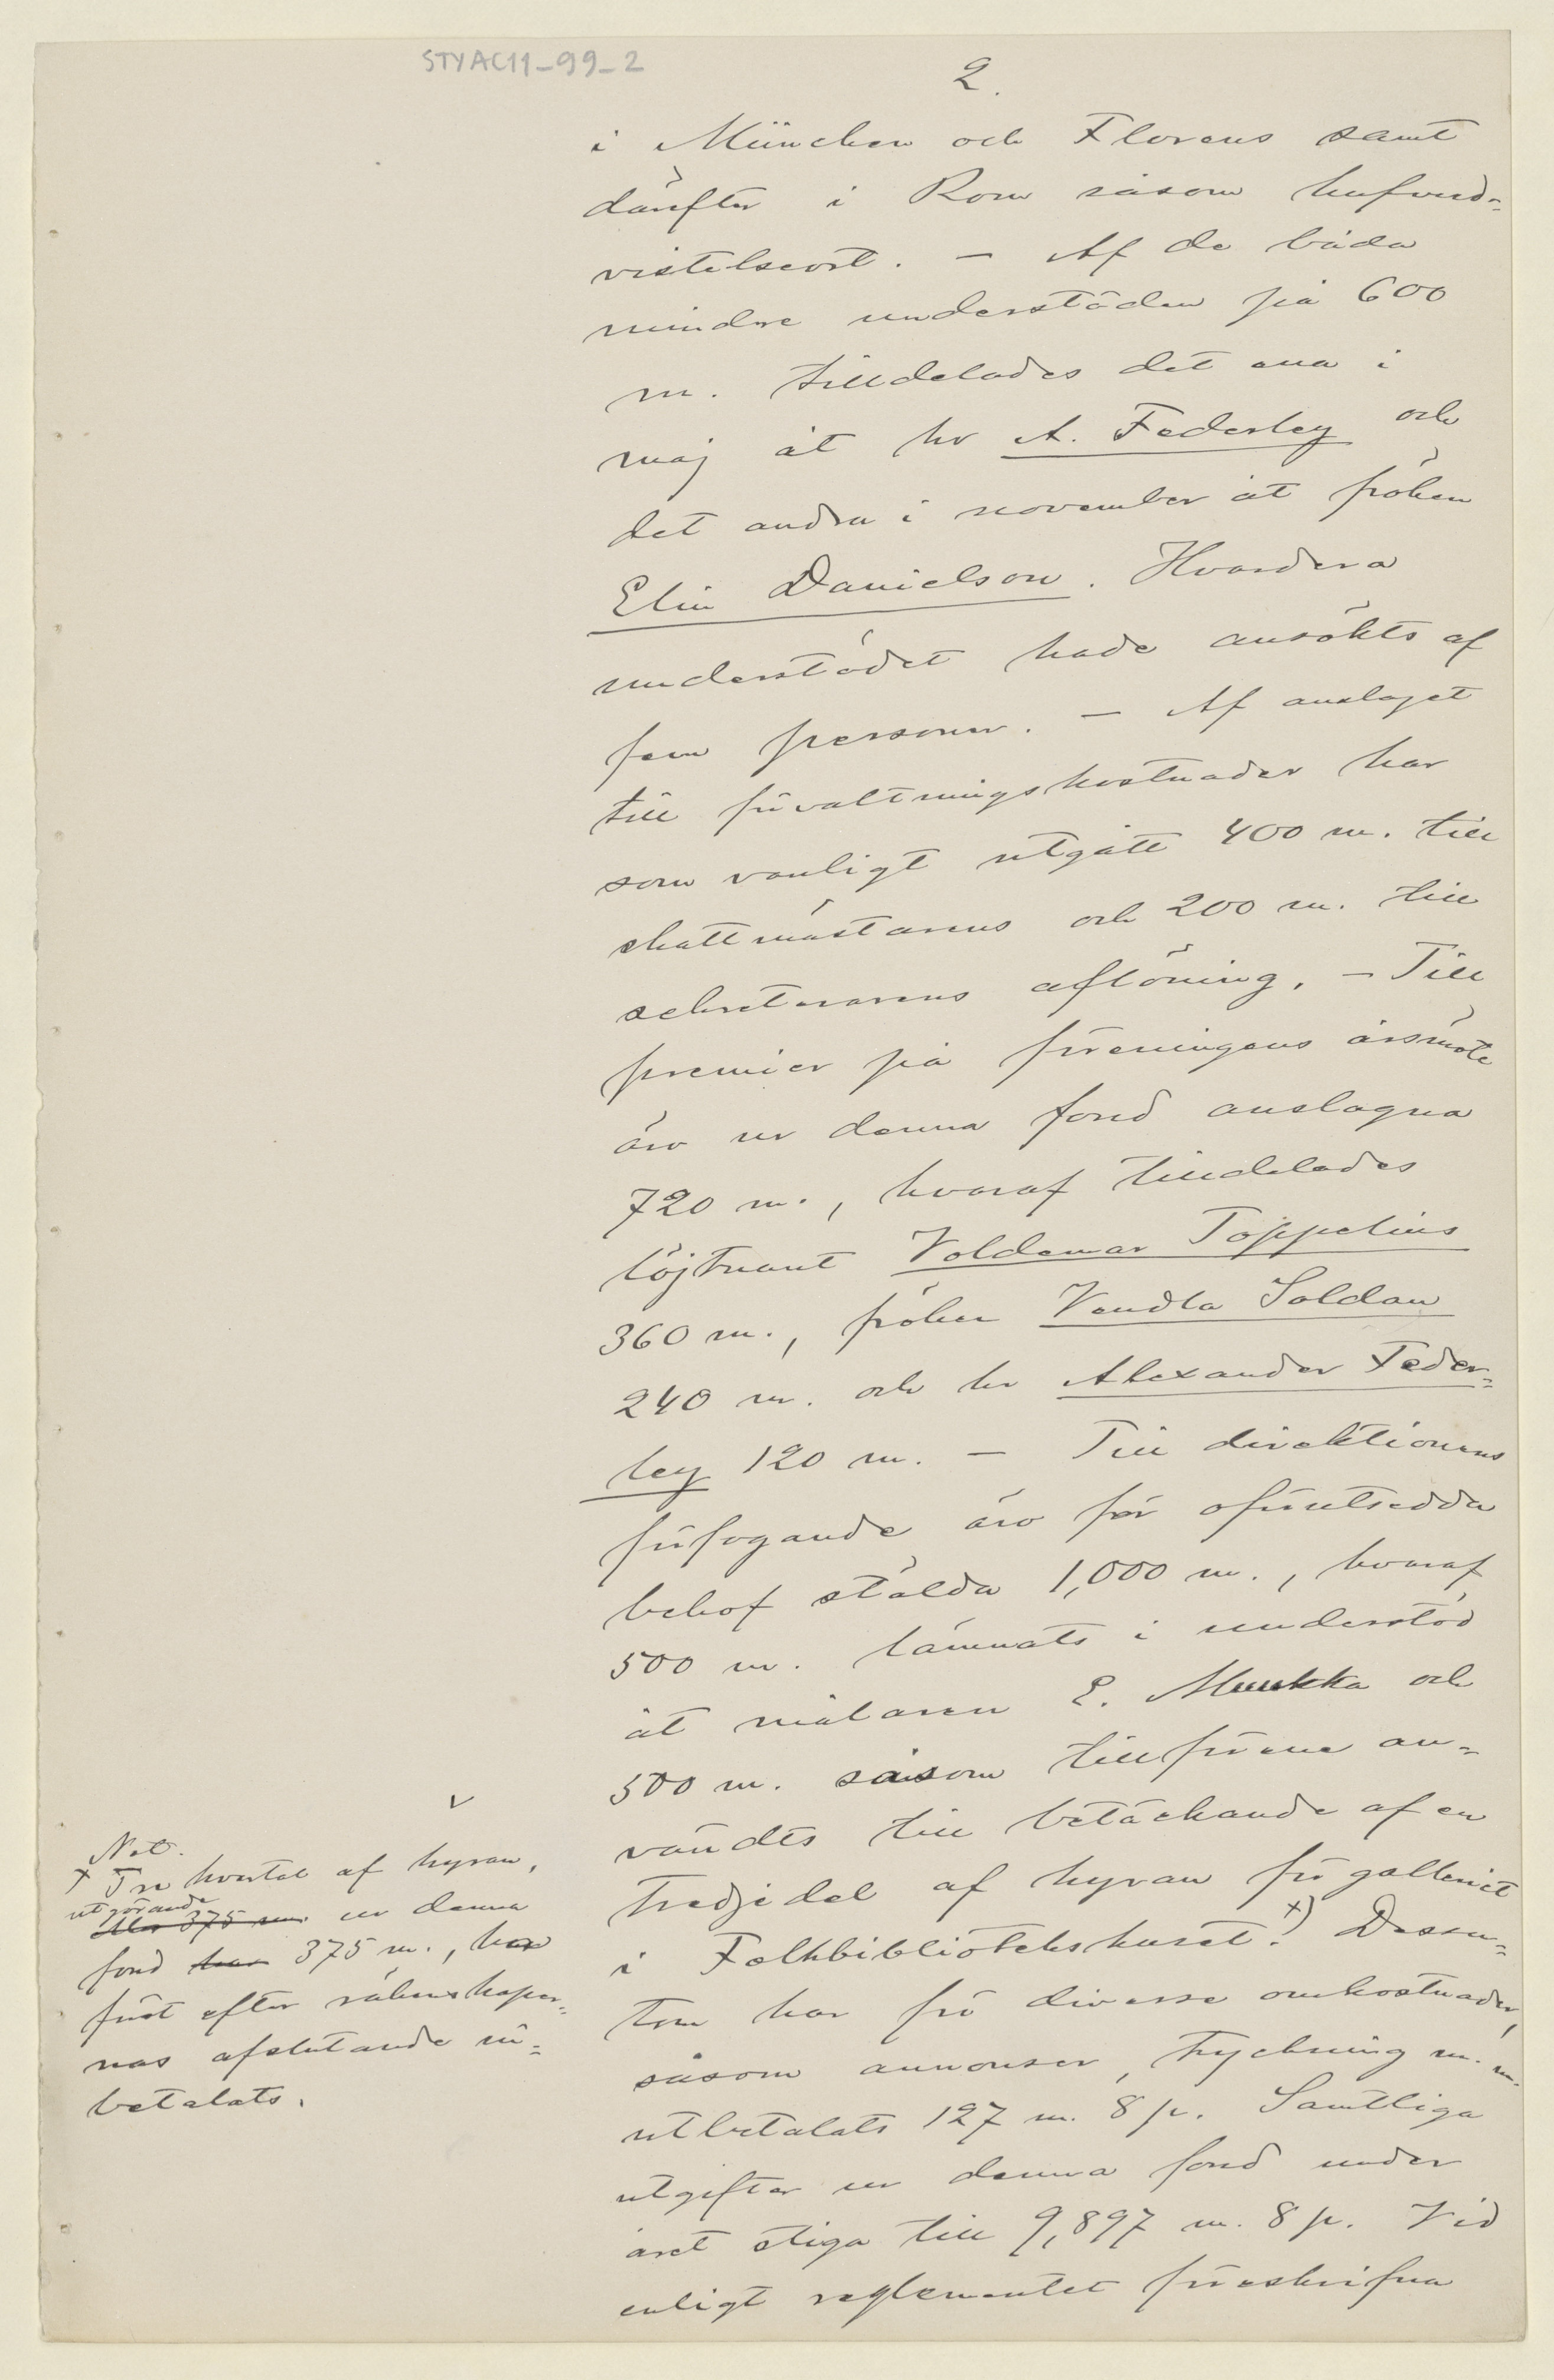 STYAC11_99_2
2.
i München och Florens samt
därefter i Rom såsom hufvud-
vistelseort. — Af de båda
mindre understöden på 600
m. tilldelades det ena i
maj åt hr A. Federley och
det andra i november åt fröken
Elin Danielson. Hvardera
understödet hade ansökts af
fem personer. — Af anslaget
till förvaltningskostnader har
som vanligt utgått 400 m. till
skattmästarens och 200 m. till
sekreterarens aflöning. — Till
premier på föreningens årsmöte
äro ur denna fond anslagna
720 m., hvaraf tilldelades
löjtnant Voldemar Toppelius
360 m., fröken Vendla Soldan
240 m. och hr Alexander Feder-
ley 120 m. — Till direktionens
förfogande äro för oförutsedda
behof stälda 1,000 m., hvaraf
500 m. lämnats i understöd
åt målaren E. Muukka och
500 m. såsom tillförene an-
vändts till betäckande af en
tredjedel af hyran för galleriet
i Folkbibliotekshuset.+) Dessu-
tom har för diverse omkostnader,
såsom annonser, tryckning m. m.
utbetalats 127 m. 8 p. Samtliga
utgifter ur denna fond under
året stiga till 9,897 m. 8 p. Vid
enligt reglementet föreskrifna
v
Not.
+ Tre kvartal af hyran,
utgörande
375 m. ur denna
fond har 375 m., har
först efter räkenskaper-
nas afslutande in-
betalats.